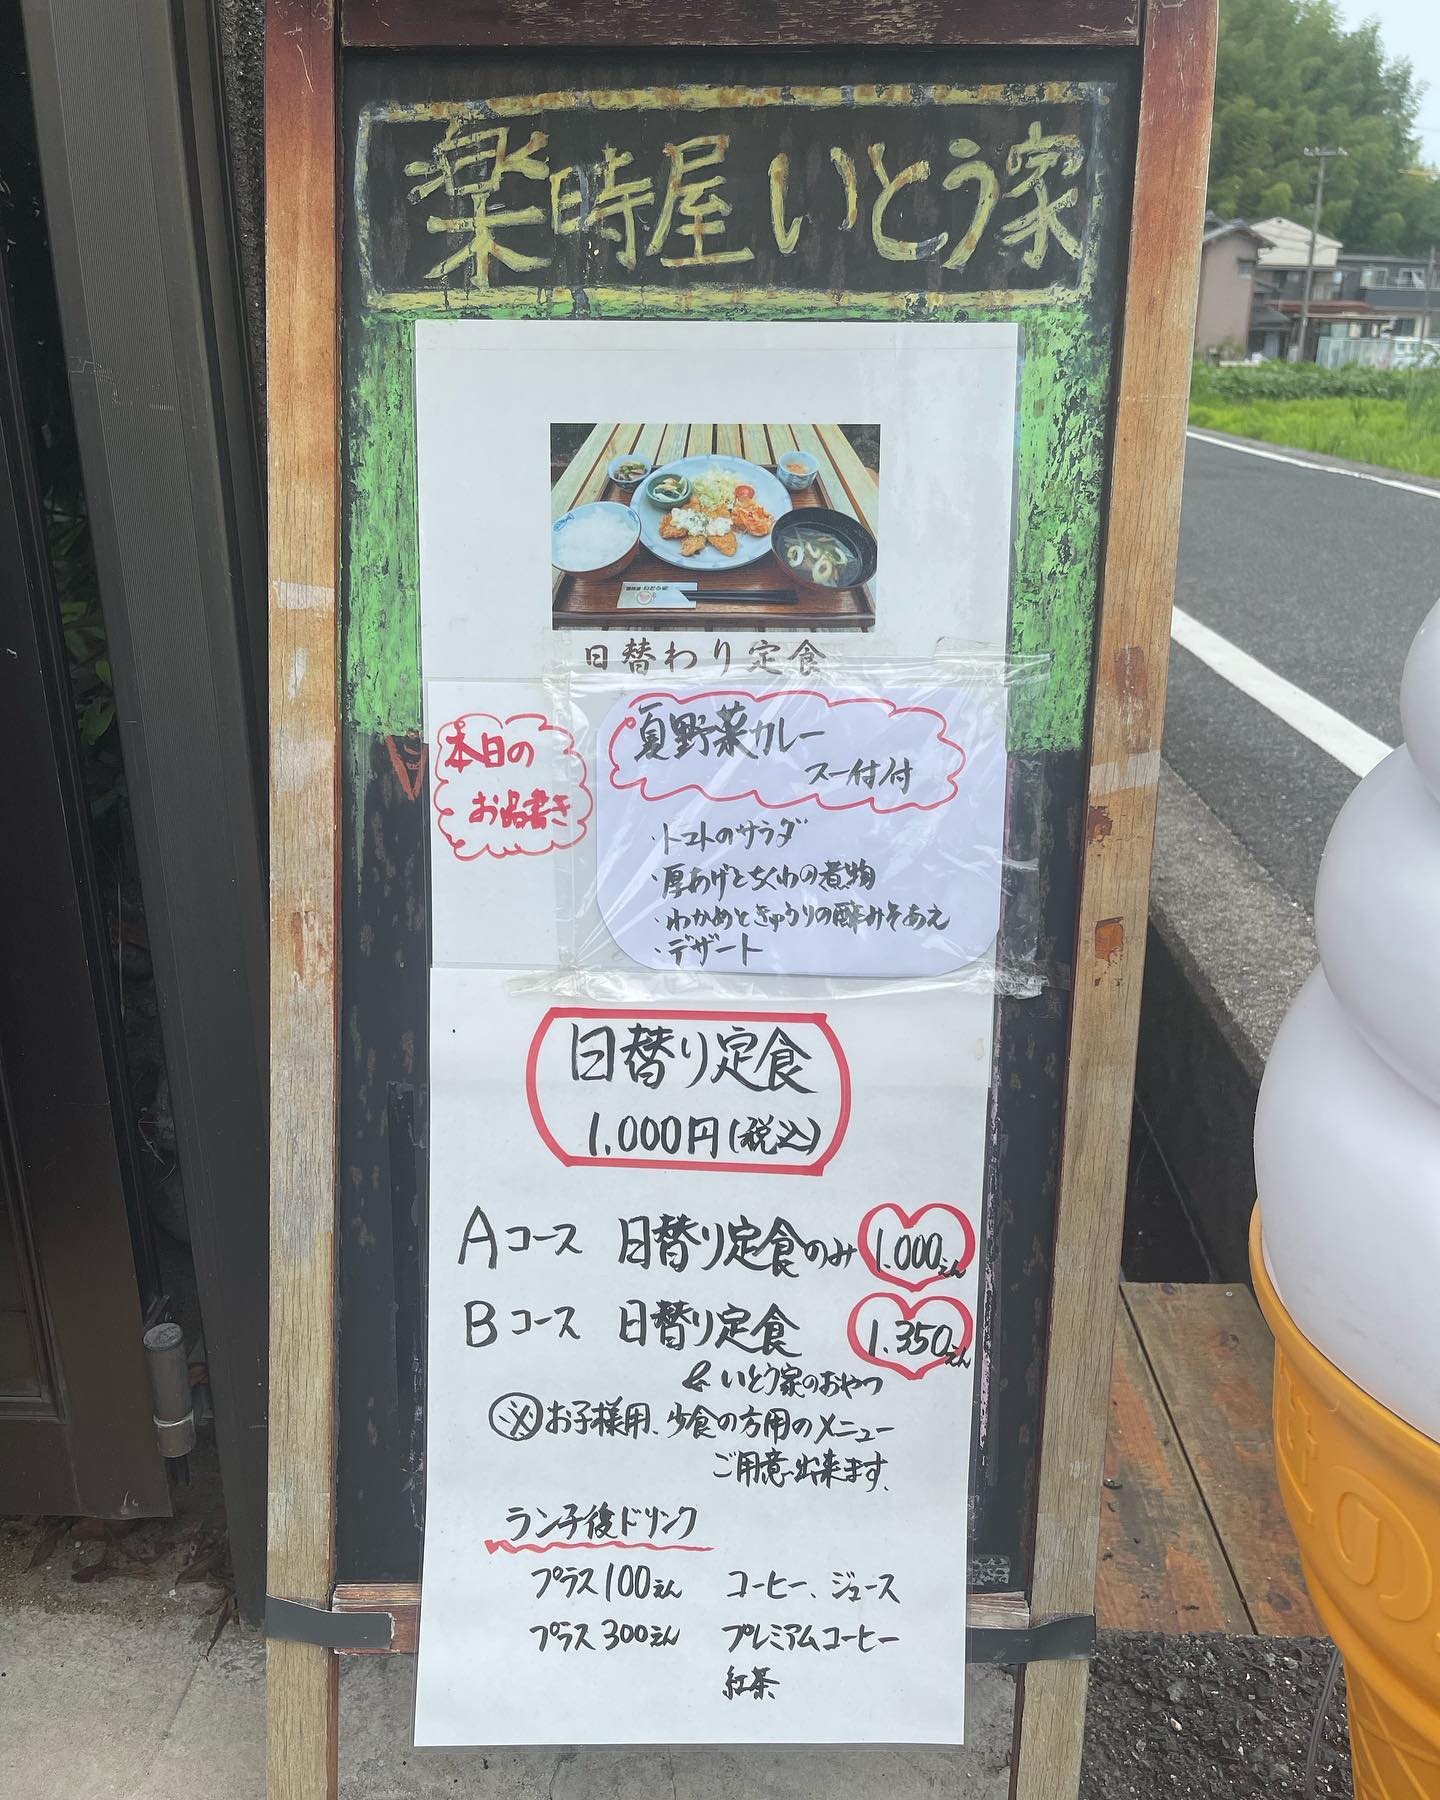 楽時屋 いとう家
日替わり定食
本日の
お品書き
夏野菜カレー
スープ付
・トマトのサラダ
・厚あげとちくわの煮物
・わかめときゅうりの酢みそあえ
・デザート
日替り定食
1.000円(税込)
Aコース 日替り定食のみ 1.000えん
Bコース 日替り定食 1.350えん
& いとう家のおやつ
※お子様用、少食の方用のメニュー
ご用意出来ます。
ランチ後ドリンク
プラス100えん コーヒー、ジュース
プラス300えん プレミアムコーヒー
紅茶